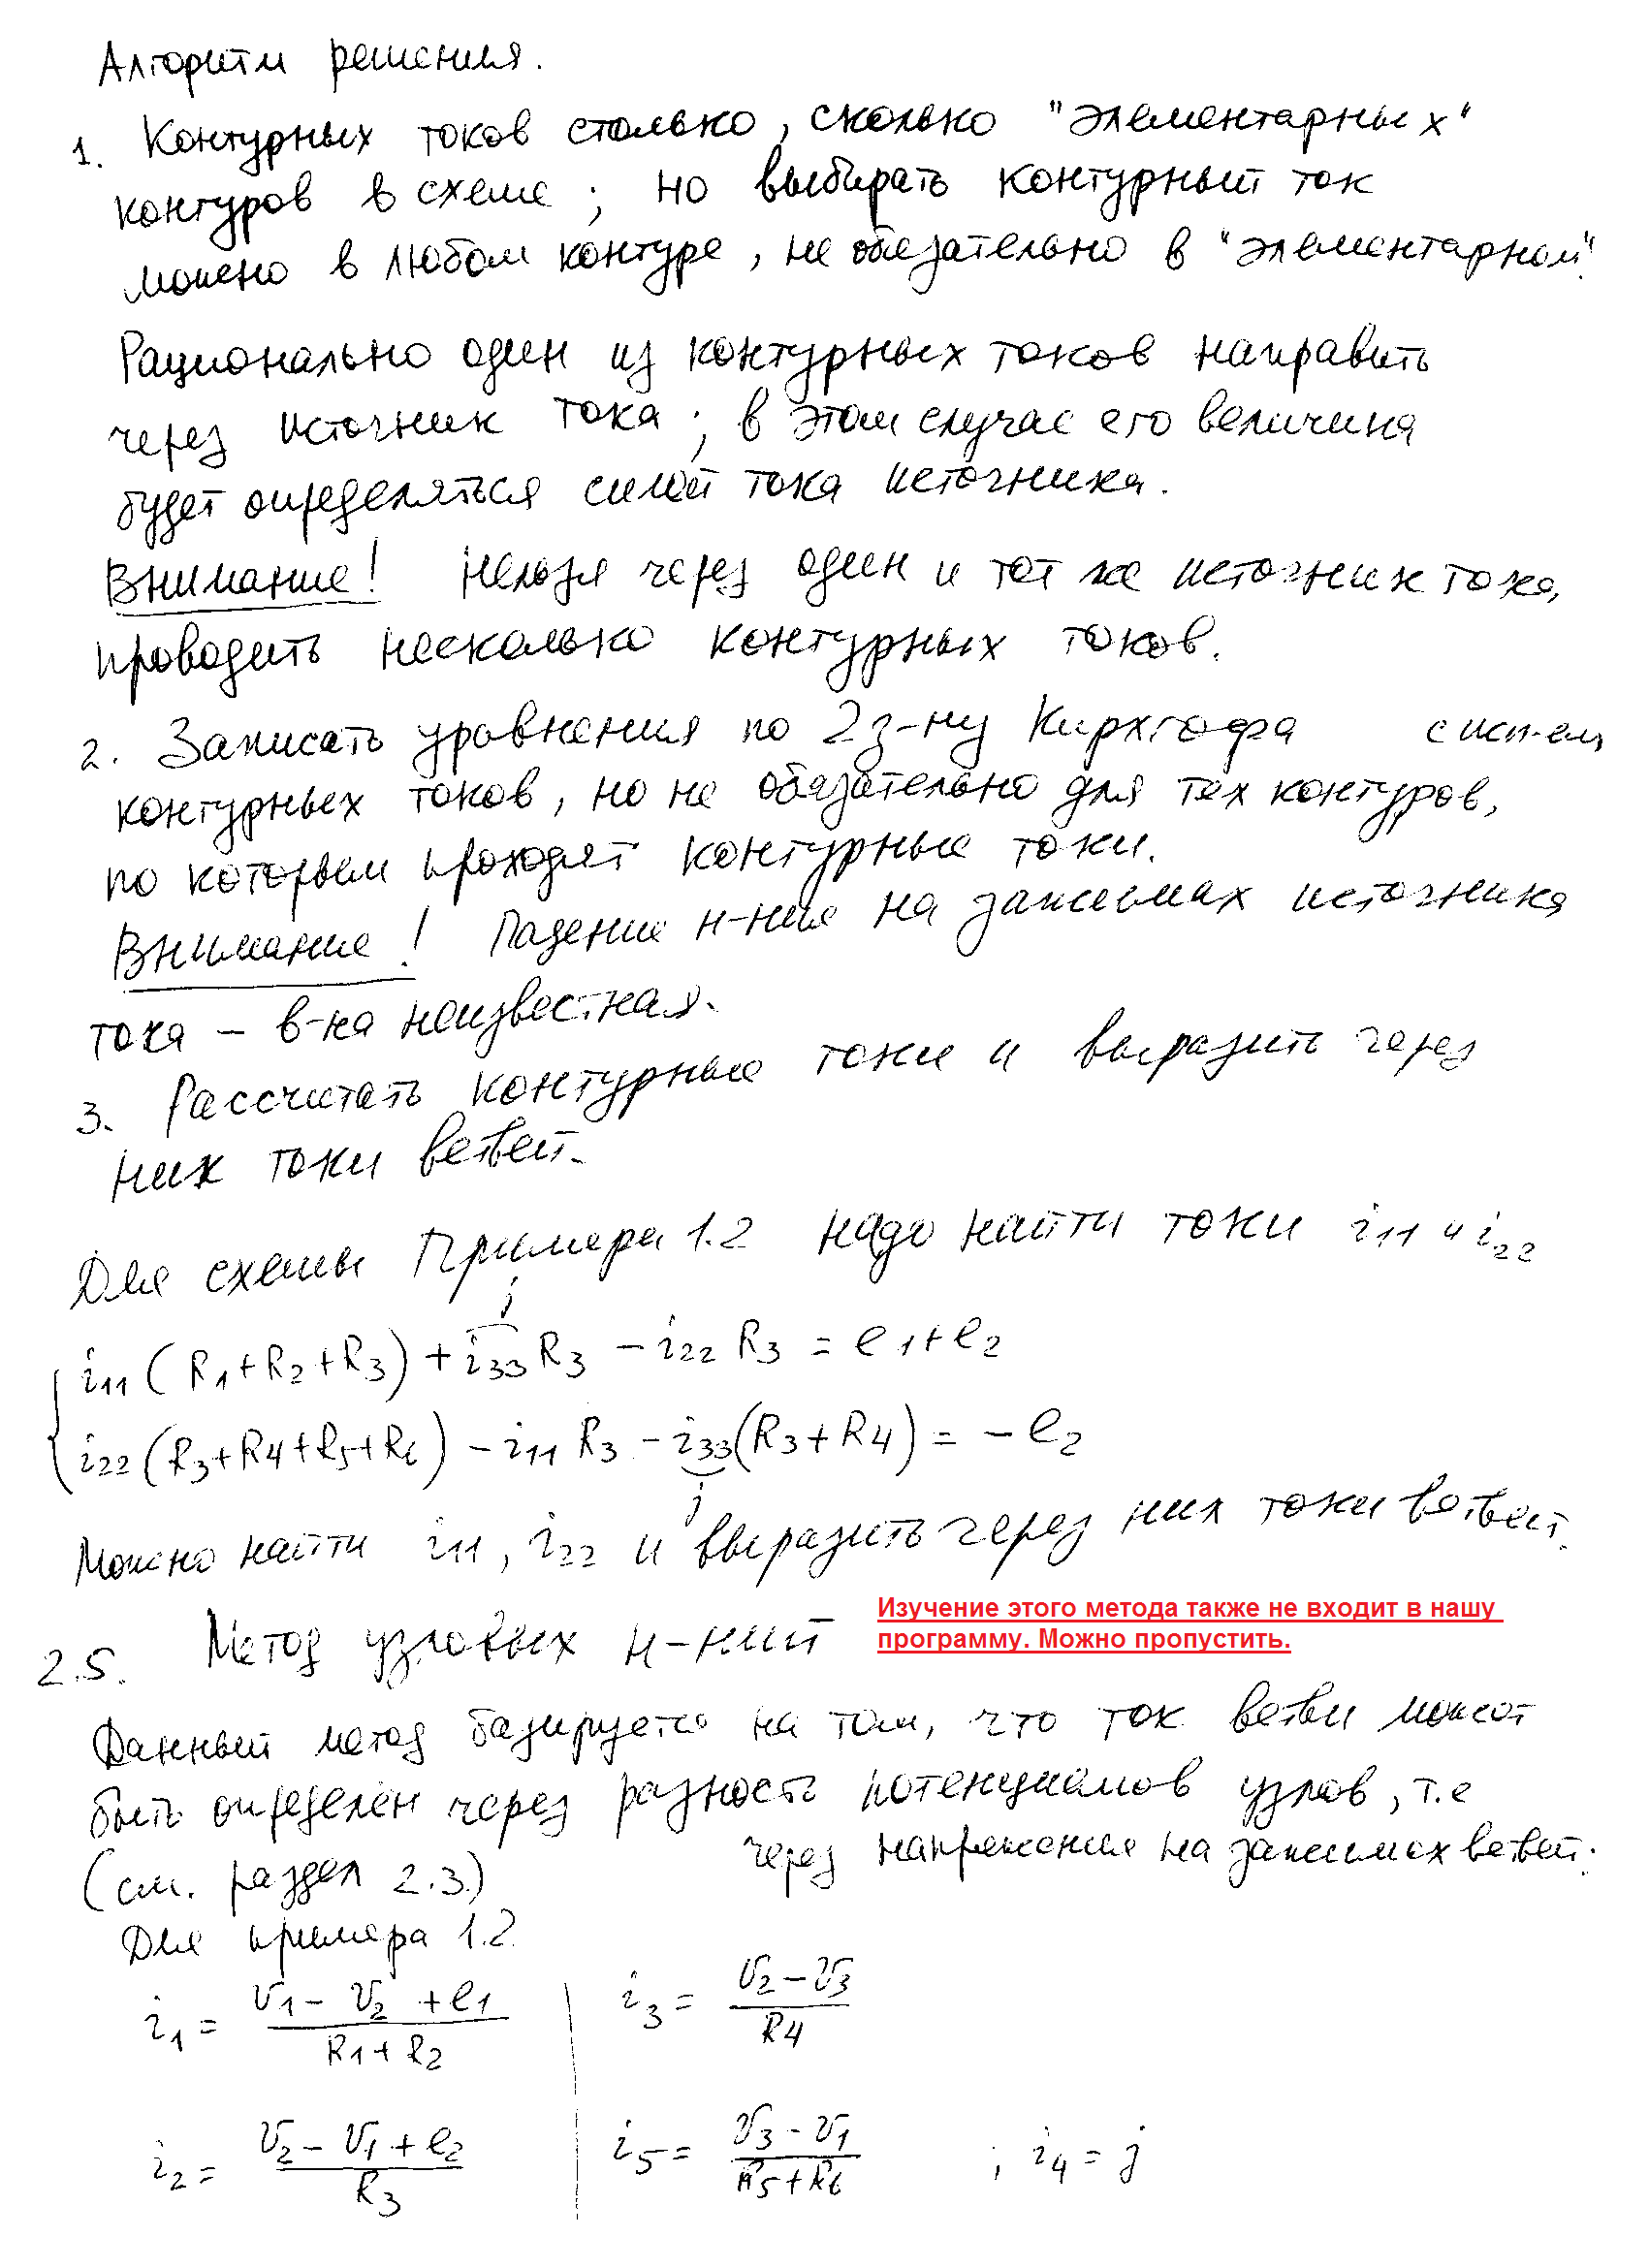 Алгоритм решения.
1. Контурных токов столько, сколько "элементарных"
контуров в схеме; но выбирать контурный ток
можно в любом контуре, не обязательно в "элементарном".
Рационально один из контурных токов направить
через источник тока; в этом случае его величина
будет определяться силой тока источника.
Внимание! Нельзя через один и тот же источник тока,
проводить несколько контурных токов.
2. Записать уравнения по 2 з-ну Кирхгофа с исп-ем
контурных токов, но не обязательно для тех контуров,
по которым проходят контурные токи.
Внимание! Падение н-ния на зажимах источника
тока – в-на неизвестная.
3. Рассчитать контурные токи и выразить через
них токи ветвей.
Для схемы Примера 1.2 надо найти токи i11 и i22
j
i11 (R1+R2+R3) + i33 R3 – i22 R3 = e1+e2
i22 (R3+R4+R5+R6) – i11 R3 – i33 (R3+R4) = – e2
j
Можно найти i11, i22 и выразить через них токи ветвей.
2.5. Метод узловых н-ний
Изучение этого метода также не входит в нашу
программу. Можно пропустить.
Данный метод базируется на том, что ток ветви может
быть определён через разность потенциалов узлов, т.е
через напряжения на зажимах ветвей.
(см. раздел 2.3.)
Для примера 1.2.
i1 = (v1 – v2 + e1) / (R1+R2)
i3 = (v2 – v3) / R4
i2 = (v2 – v1 + e2) / R3
i5 = (v3 – v1) / (R5+R6) ; i4 = j